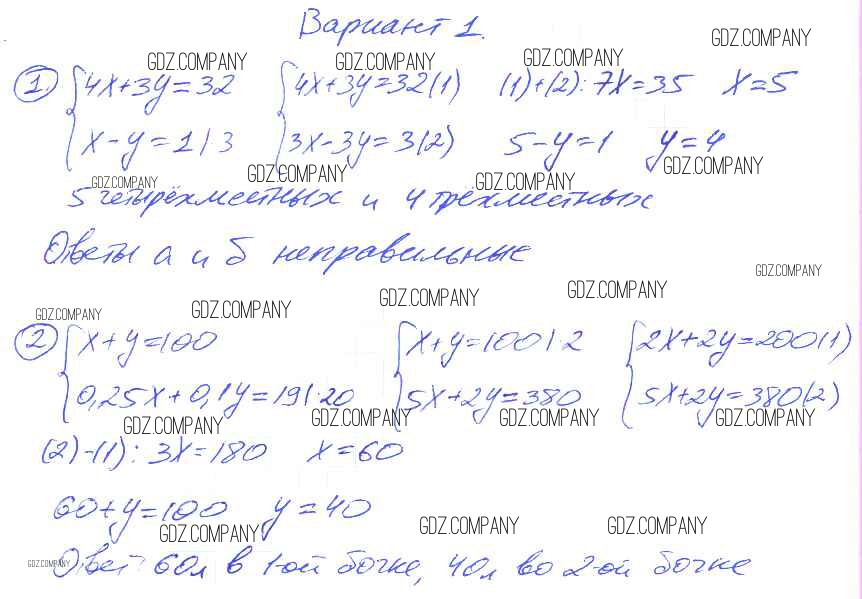 Вариант 1.
GDZ.COMPANY
GDZ.COMPANY GDZ.COMPANY GDZ.COMPANY
1 4x+3y=32 4x+3y=32(1) (1)+(2): 7x=35 x=5
x-y=1|3 3x-3y=3(2) 5-y=1 y=4
GDZ.COMPANY GDZ.COMPANY GDZ.COMPANY GDZ.COMPANY
5 четырёхместных и 4 трёхместных
Ответы а и б неправильные
GDZ.COMPANY GDZ.COMPANY GDZ.COMPANY GDZ.COMPANY GDZ.COMPANY
2 x+y=100 x+y=100|2 2x+2y=200(1)
0,25x+0,1y=19|·20 5x+2y=380 5x+2y=380(2)
GDZ.COMPANY GDZ.COMPANY GDZ.COMPANY GDZ.COMPANY
(2)-(1): 3x=180 x=60
60+y=100 y=40
GDZ.COMPANY GDZ.COMPANY GDZ.COMPANY
GDZ.COMPANY
Ответ 60л в 1-ой бочке, 40л во 2-ой бочке